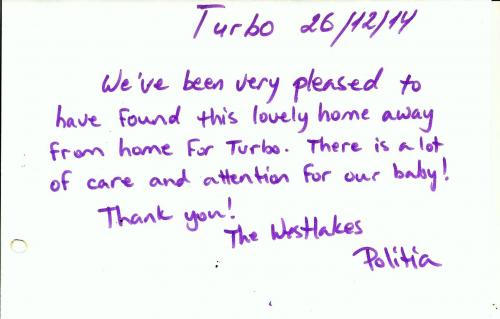 Turbo 26/12/14
We've been very pleased to
have found this lovely home away
from home for Turbo. There is a lot
of care and attention for our baby!
Thank you!
The Westlakes
Politia